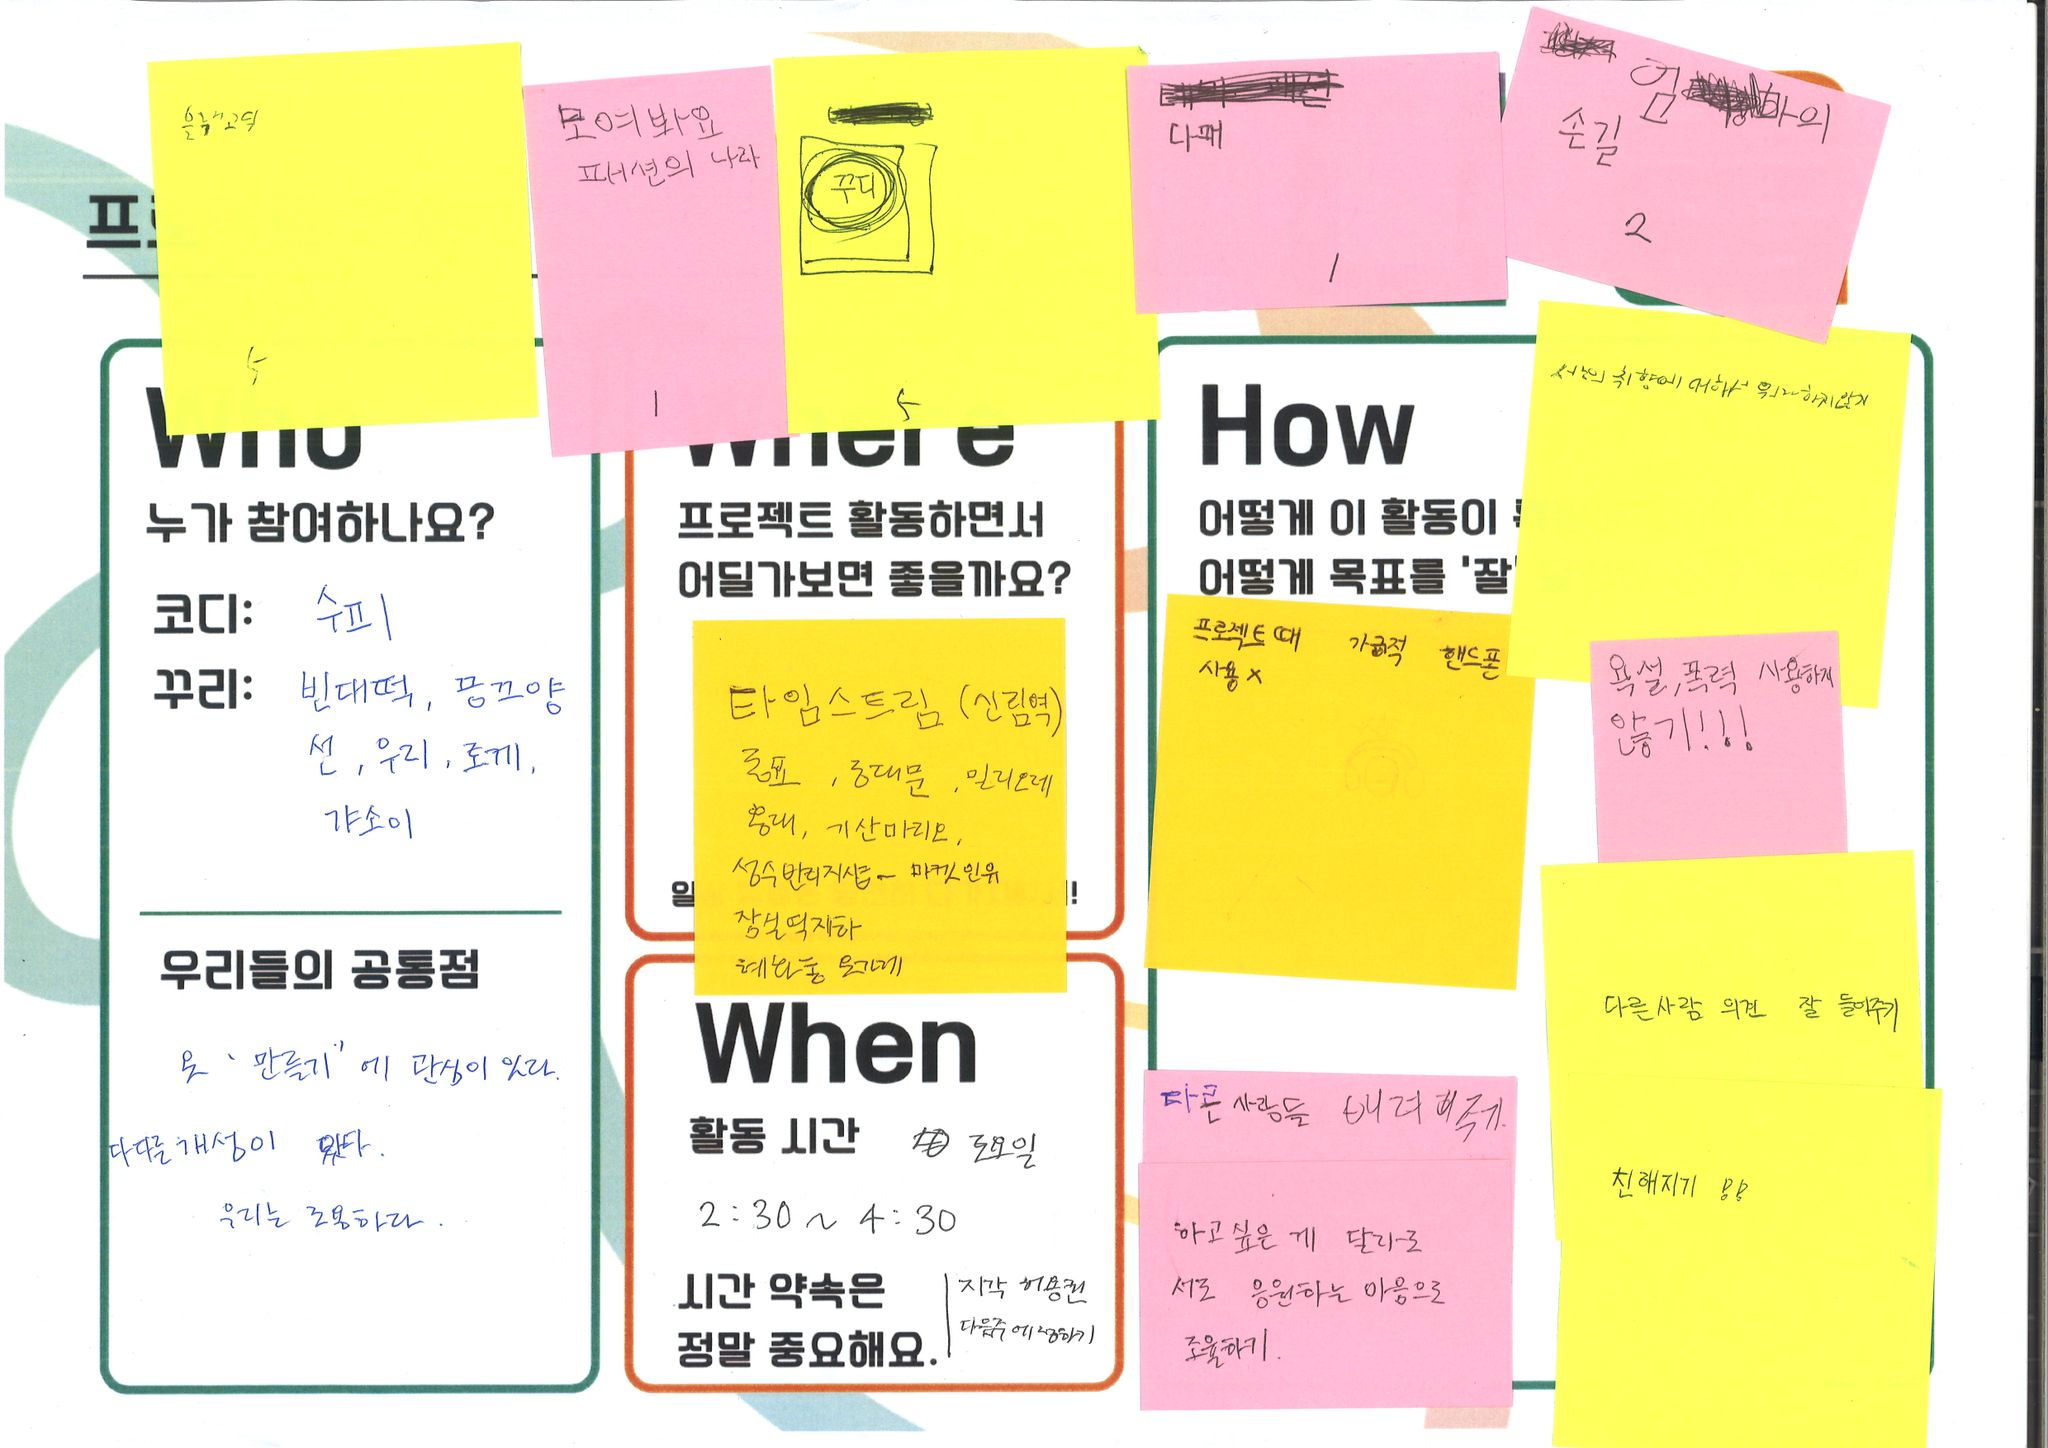 모여봐요
패션의 나라
꾸디
다패
엄 마의
손길
5
1
5
1
2
프로
Who
누가 참여하나요?
코디: 수피
꾸리: 빈대떡, 끙끄양
선, 우리, 로케,
갸소이
우리들의 공통점
옷 "만들기"에 관심이 있다.
다 다른 개성이 있다.
우리는 조용하다.
Where
프로젝트 활동하면서
어딜가보면 좋을까요?
타임스트림 (신림역)
동묘, 동대문, 밀리오레
홍대, 기산마리오,
성수빈티지샵 - 마켓인유
잠실역지하
혜화동 옷가게
When
활동 시간 토요일
2:30 ~ 4:30
시간 약속은
정말 중요해요.
지각 허용권
다음주에 정하기
How
어떻게 이 활동이
어떻게 목표를 '잘'
서로의 취향에 대해서 뭐라하지않기
프로젝트 때 가급적 핸드폰
사용 x
욕설, 폭력 사용하지
않기!!!
다른사람 의견 잘 들어주기
다른 사람들 배려해주기
친해지기
하고 싶은 게 달라도
서로 응원하는 마음으로
조율하기.